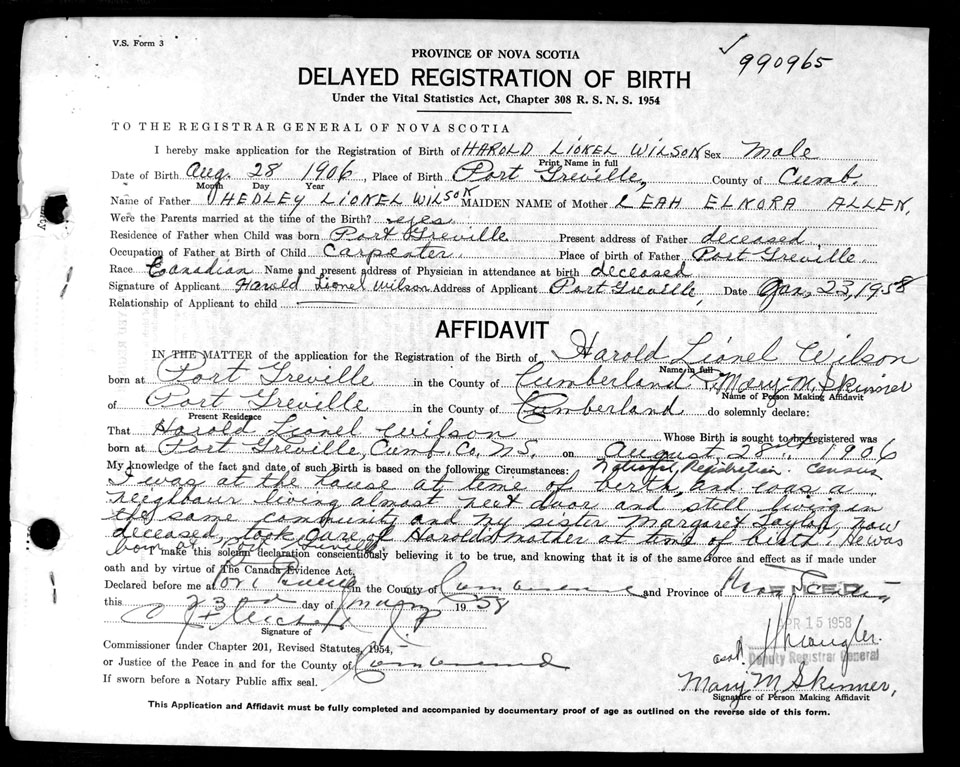 V.S. Form 3
PROVINCE OF NOVA SCOTIA
✓ 990965
DELAYED REGISTRATION OF BIRTH
Under the Vital Statistics Act, Chapter 308 R. S. N. S. 1954
TO THE REGISTRAR GENERAL OF NOVA SCOTIA
I hereby make application for the Registration of Birth of HAROLD LIONEL WILSON Sex Male
Print Name in full
Date of Birth Aug. 28 1906, Place of Birth Port Greville, County of Cumb.
Month Day Year
Name of Father HEDLEY LIONEL WILSON MAIDEN NAME of Mother LEAH ELNORA ALLEN,
Were the Parents married at the time of the Birth? yes
Residence of Father when Child was born Port Greville Present address of Father deceased,
Occupation of Father at Birth of Child Carpenter. Place of birth of Father Port Greville.
Race Canadian Name and present address of Physician in attendance at birth deceased
Signature of Applicant Harold Lionel Wilson Address of Applicant Port Greville, Date Jan, 23, 1958
Relationship of Applicant to child
AFFIDAVIT
IN THE MATTER of the application for the Registration of the Birth of Harold Lionel Wilson
Name in full
born at Port Greville in the County of Cumberland I, Mary M. Skinner
Name of Person Making Affidavit
of Port Greville in the County of Cumberland do solemnly declare:
Present Residence
That Harold Lionel Wilson Whose Birth is sought to be registered was
born at Port Greville, Cumb. Co, N.S. on August, 28th, 1906
My knowledge of the fact and date of such Birth is based on the following Circumstances: National Registration. Census
I was at the house at time of birth, and was a
neighbour living almost next door and still living in
the same community and my sister Margaret Taylor, now
deceased, took care of Harold's mother at time of birth. He was
born at Port Greville
I make this solemn declaration conscientiously believing it to be true, and knowing that it is of the same force and effect as if made under
oath and by virtue of The Canada Evidence Act.
Declared before me at Port Greville in the County of Cumberland and Province of Nova Scotia
this 23rd day of January 1958
J.P.
Signature of
APR 15 1958
Commissioner under Chapter 201, Revised Statutes, 1954,
or Justice of the Peace in and for the County of Cumberland
Deputy Registrar General
If sworn before a Notary Public affix seal.
Mary M Skinner,
Signature of Person Making Affidavit
This Application and Affidavit must be fully completed and accompanied by documentary proof of age as outlined on the reverse side of this form.